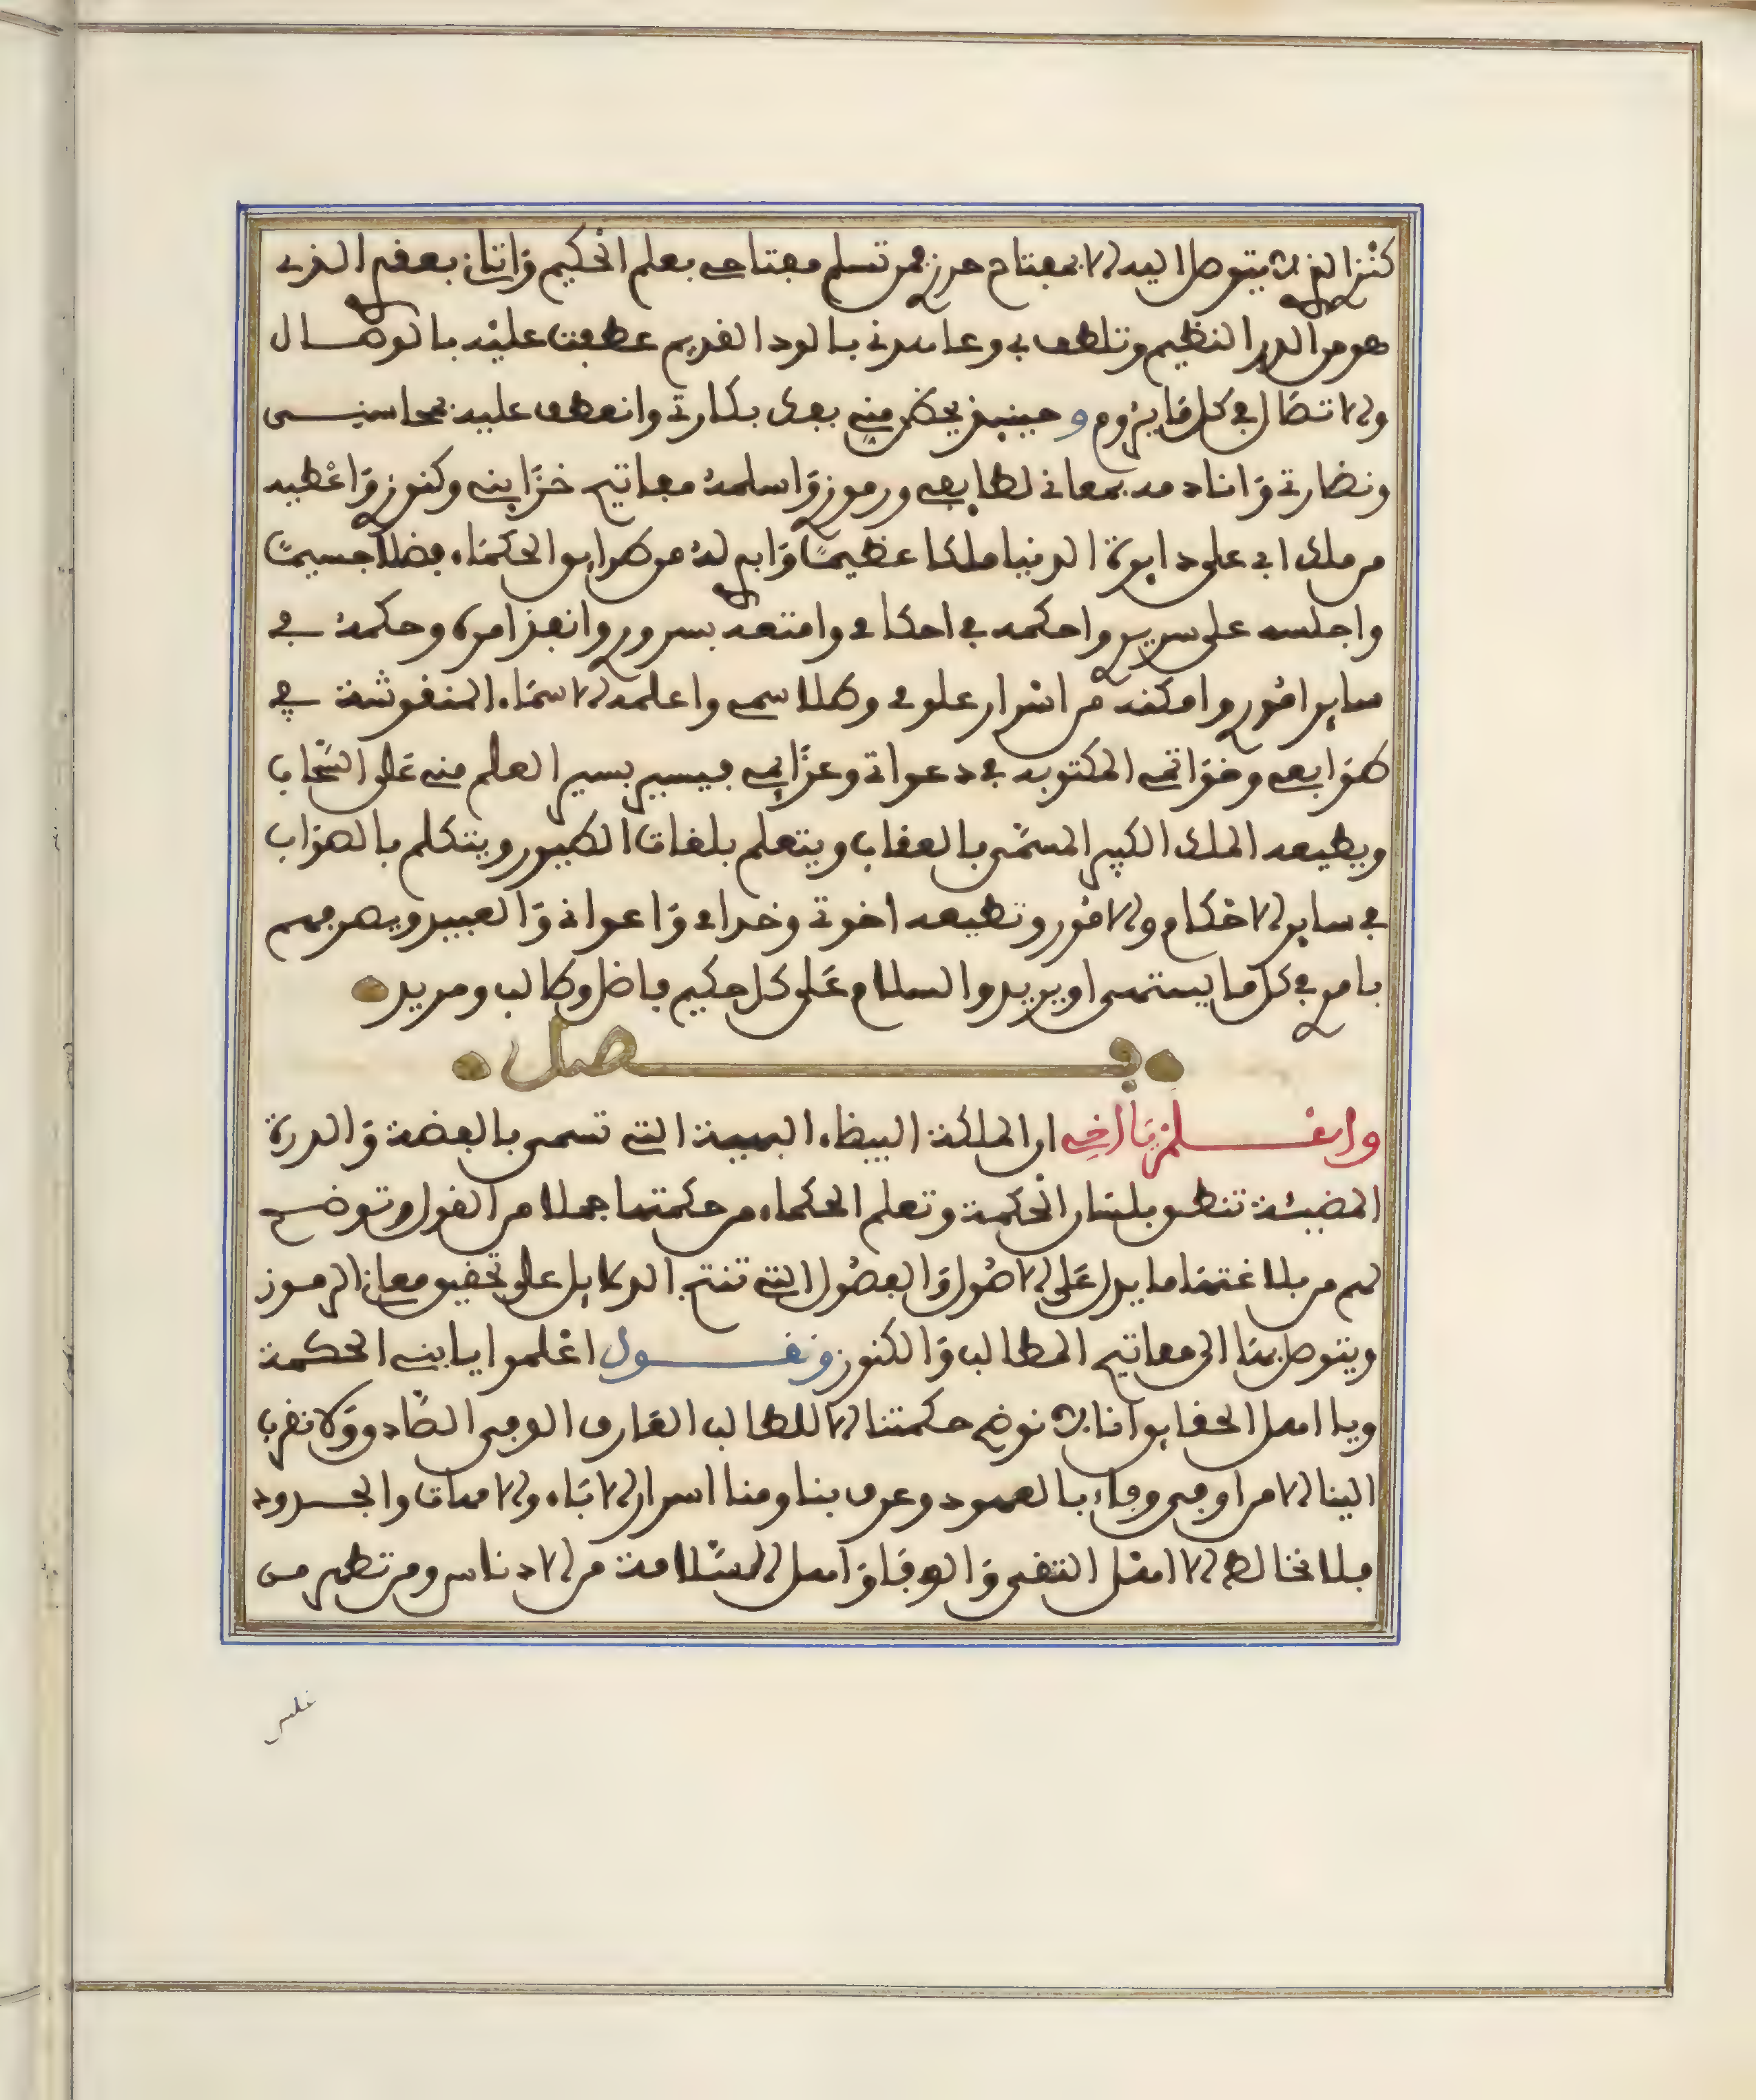 كنز الذي لا يتوصل اليه الا بمفتاح حرز فمن تسلم مفتاحي بعلم الحكيم وَاتانِ بعقدِ الذي
هو من الدر النظيم وتلطف بي وعاهدني بالود القديم عطفت عليْه بالوصال
والاتصَال في كل مَا يرُوم و حينيذ يحظى مني بفك بكارتي وانعطف عليه بمحاسني
ونضارتي وَانادمه بمعاني لطايفي ورموز وَاسلمهُ مفاتيح خزَايني وكنوز وَاعْطيه
من ملك ابي على دايرة الدنيا ملكا عظيمًا وَابي لهُ من طرايق الحكمَاء فضلا جسيمًا
واجلسه على سرير واحكمه في احكامي وامتعه بسرور وانفذ امره وحكمهُ في
ساير امُور وامكنه من اسْرار علومي وطلاسمي واعلمه الاسمَاء المنقوشة في
طوَابعي وخوَاتمي المكتوبه في دعواتي وعزَايمي فيسير بسير العلم مني عَلى السَّحاب
ويطيعه الملك الكبير المسمَّى بالعقاب ويتعلم بلغات الطيور ويتكلم بالصوَاب
في ساير الاحْكام والامُور وتطيعه اخوتي وخدامي وَاعواني وَالعبيد ويصرفهم
بامر في كل ما يشتهي او يريد والسلام عَلى كل حكيم فاضل وطالب ومريد
فصل
واعْلم يَا اخِي ان الملكة البيظاء البهية التي تسمى بالفضة وَالدرة
المضيئة تنطق بلسَان الحْكمة وتعلم الحكماء من حكمتها جملا من القول وتوضح
لهم من بلاغتهَا ما يدل عَلى الاصُول وَالفصُول التي تنتج الدلايل على تحقيق معان الرموز
ويتوصل بهَا الى مفاتيح المطالب وَالكنوز ونقول اعْلموا يا بني الحكمة
ويا اهل الحقايق انا لا نوضح حكمتنا الا للطالب العَارف الوفي الصَّادق وَلا نقرب
الينا الا من اوفى وفاء بالعهود وعرف بنا ومنا اسرار الابَاء والامهات والجدود
فلا تخالط الا اهْل التقى وَالوفَا وَاهل السَّلامة من الادناس ومن تطهر من